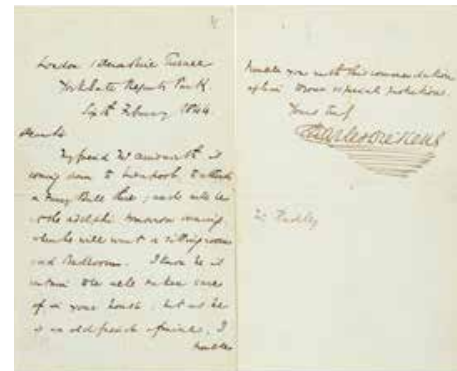 London 1 Devonshire Terrace
York Gate Regents Park
Sixth February 1844.
Dear Sir
My friend Mr Ainsworth is
coming down to Liverpool to attend
a Fancy Ball there; and will be
at the Adelphi tomorrow evening,
when he will want a sitting room
and Bedroom. I know he is
certain to be well taken care
of in your house, but as he
is an old friend of mine, I
trouble
trouble you with this commendation
of him to your especial
Yours truly
Charles Dickens
Mr Radley